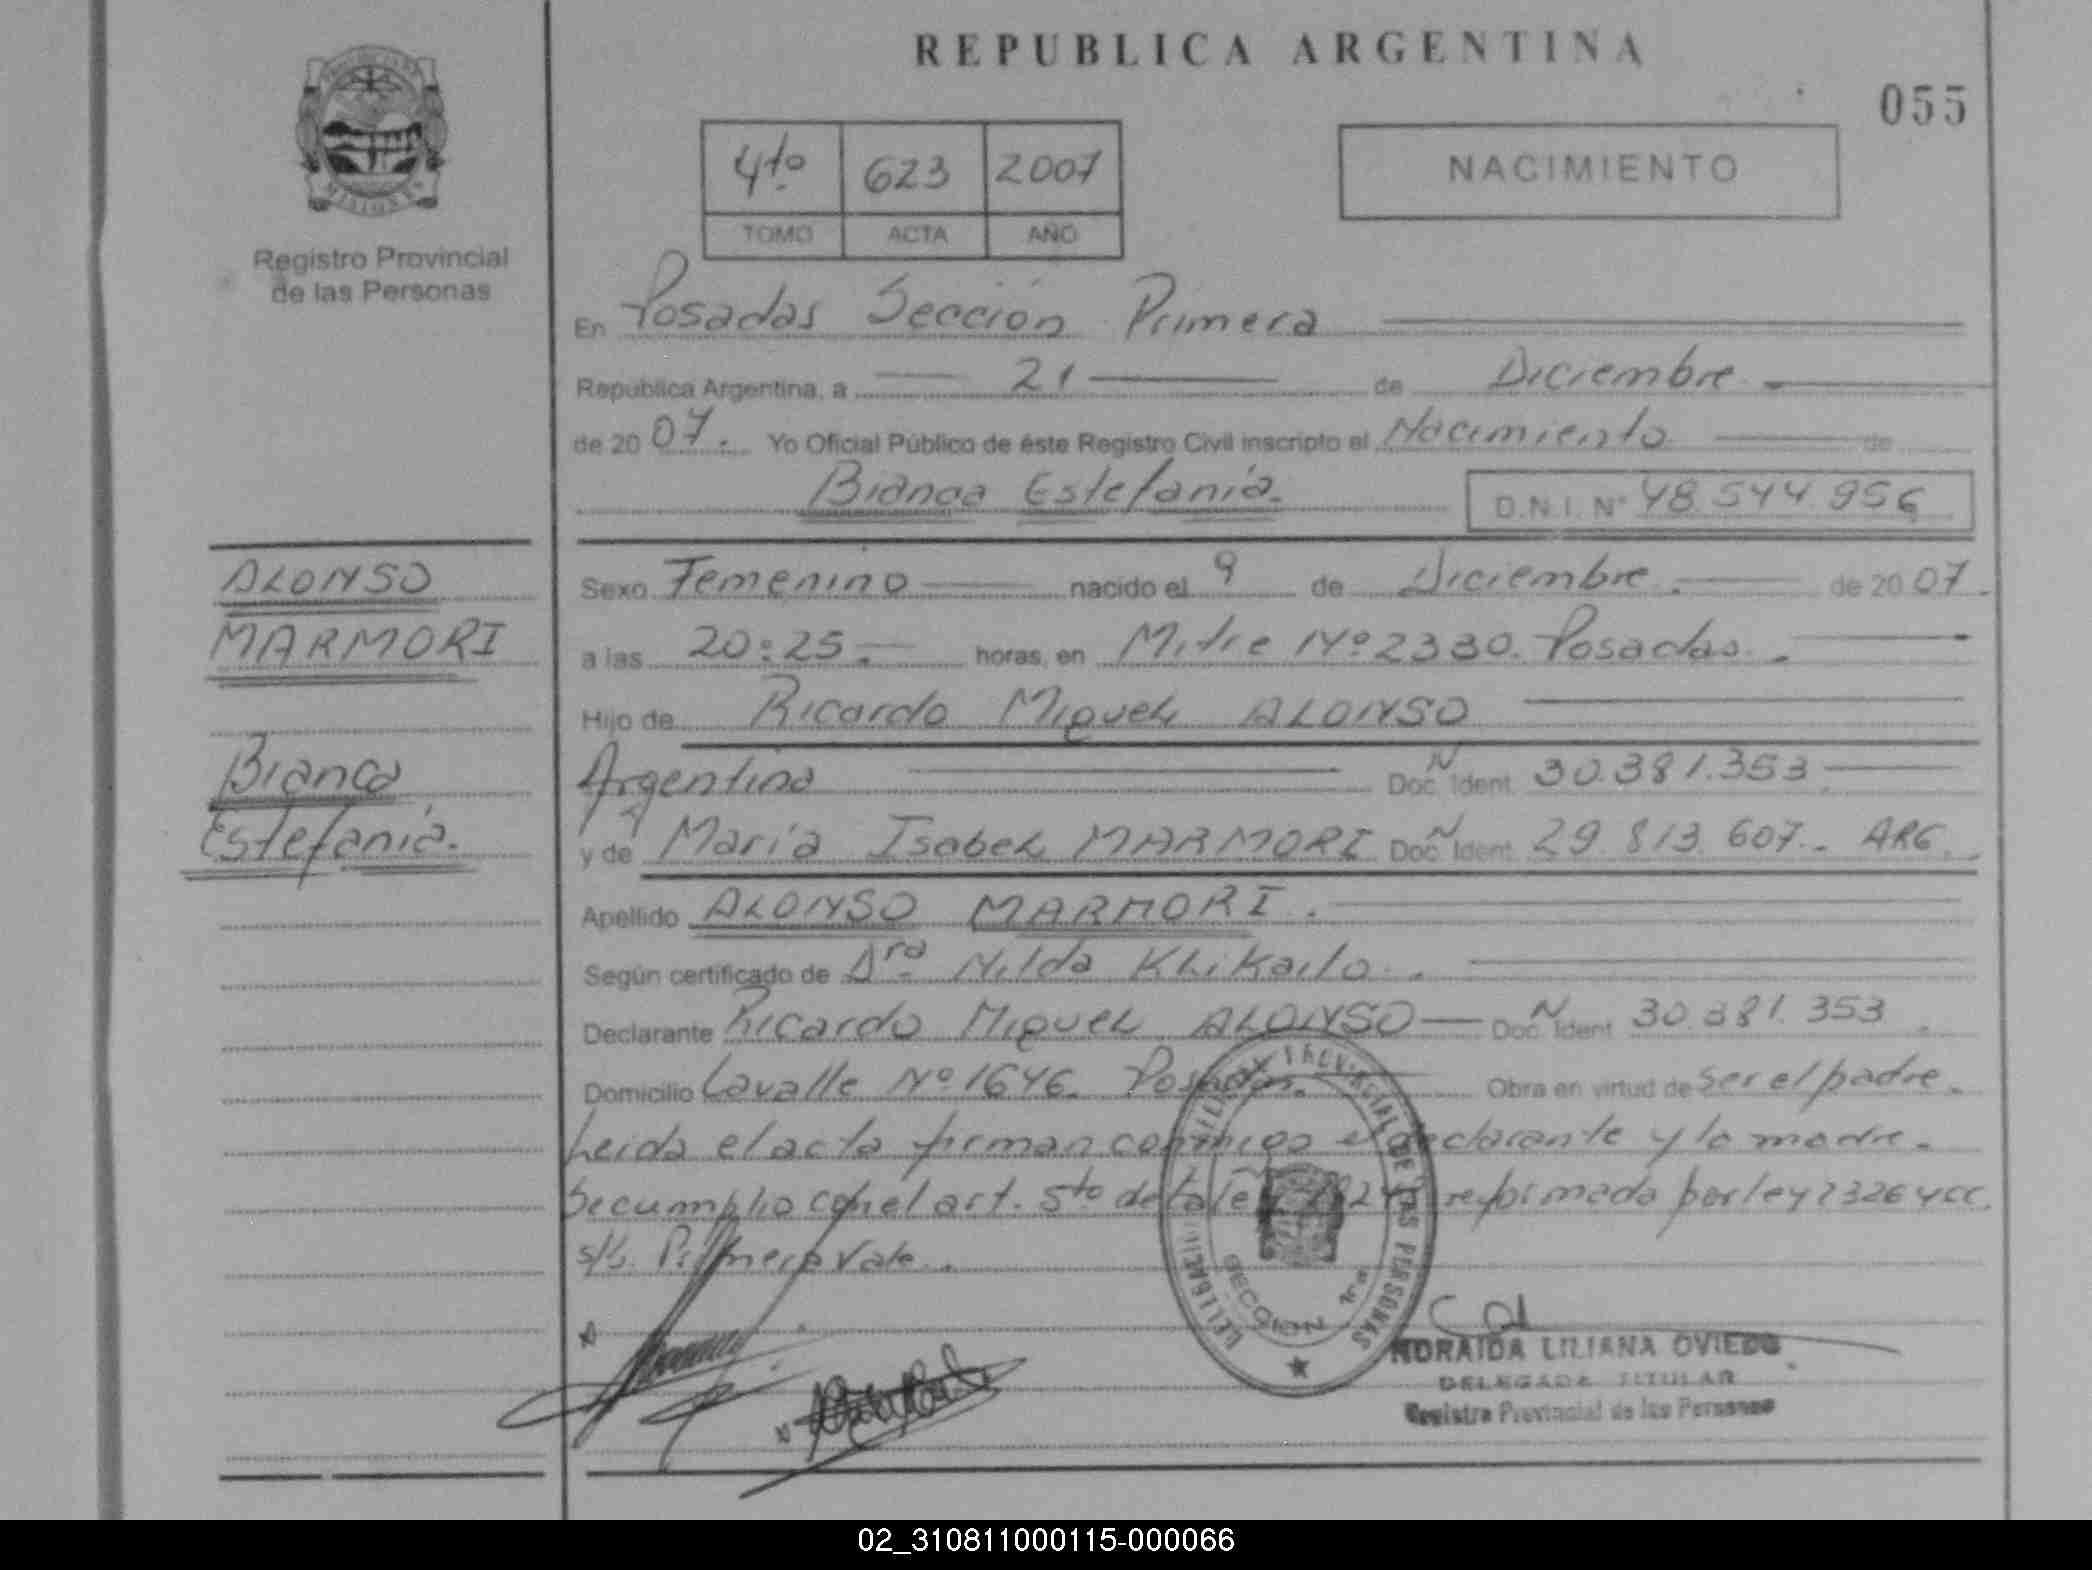 REPUBLICA ARGENTINA
055
4to 623 2007
TOMO ACTA AÑO
NACIMIENTO
MISIONES
Registro Provincial
de las Personas
En Posadas Sección Primera
Republica Argentina, a 21 de Diciembre
de 20 07. Yo Oficial Público de éste Registro Civil inscripto el Nacimiento de
Bianca Estefanía.
D.N.I. N° 48.544.956
ALONSO
MARMORI
Bianca
Estefanía.
Sexo Femenino nacido el 9 de Diciembre. de 20 07.
a las 20:25. horas, en Mitre Nº 2330. Posadas.
Hijo de Ricardo Miguel ALONSO
Argentina Doc. Ident. N 30.381.353
y de María Isabel MARMORI Doc. Ident. N 29.813.607.. ARG.
Apellido ALONSO MARMORI.
Según certificado de Dra Nilda Khikailo.
Declarante Ricardo Miguel ALONSO Doc. Ident. N 30.381.353
Domicilio Lavalle Nº 1646. Posadas. Obra en virtud de ser el padre.
Leida el acta firman conmigo el declarante y la madre.
Se cumplio con el art. 5to de la ley reformada por ley 23264 CC.
s/b. Primera Vale.
SECCION 1ra
NORAIDA LILIANA OVIEDO
DELEGADA TITULAR
Registro Provincial de las Personas
02_310811000115-000066